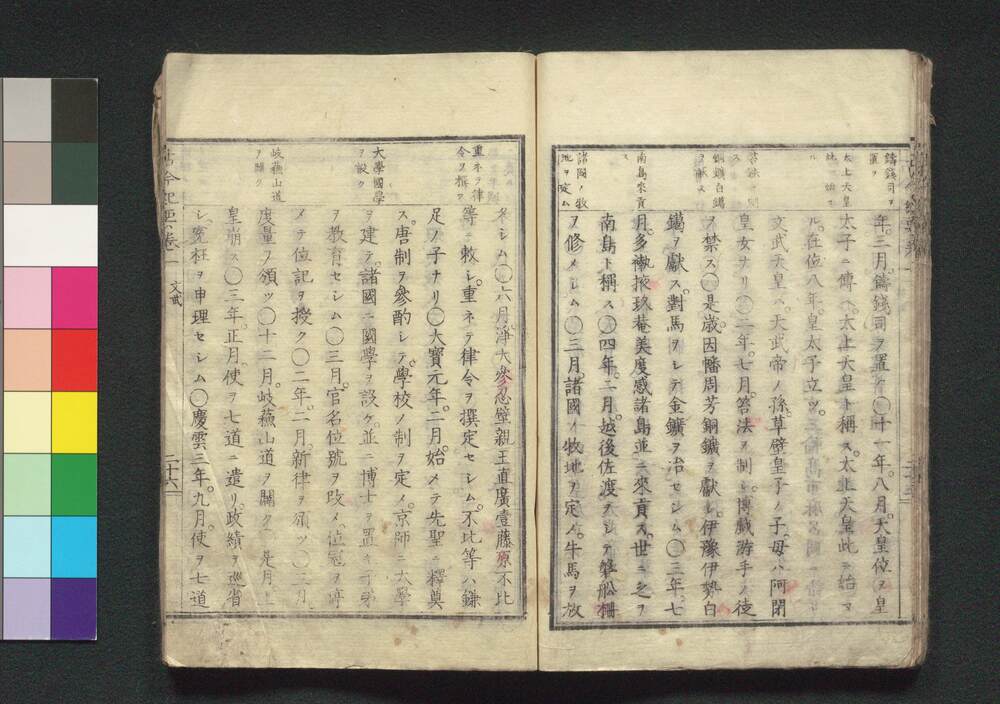 鑄錢司ヲ置ク
太上天皇
諸國ノ牧地ヲ定ム
南島來貢ス
銅鑛白鑞ヲ獻ス
年。三月。鑄錢司ヲ置ク〇十一年。八月。天皇位ヲ皇
太子ニ傳ヘ。太上天皇ト稱ス。太上天皇此ニ始マ
ル。在位八年。皇太子立ツ。
文武天皇ハ。天武帝ノ孫。草壁皇子ノ子。母ハ阿閉
皇女ナリ〇二年。七月。笞法ヲ制シ。博戯游手ノ徒
ヲ禁ス〇是歳。因幡周芳銅鑛ヲ獻シ。伊豫伊勢白
鑞ヲ獻ス。對馬ヲシテ金鑛ヲ冶セシム〇三年。七
月。多褹掖玖菴美度感諸島並ニ來貢ス。世ニ之ヲ
南島ト稱ス〇四年。二月。越後佐渡ヲシテ磐船柵
ヲ修メシム〇三月。諸國ノ牧地ヲ定メ。牛馬ヲ放
重ネテ律令ヲ撰ス
大學國學ヲ設ク
岐蘓山道ヲ開ク
タシム〇六月。淨大參忍壁親王直廣壹藤原不比
等ニ敕シ。重ネテ律令ヲ撰定セシム。不比等ハ鎌
足ノ子ナリ〇大寶元年。二月。始メテ先聖ニ釋奠
ス。唐制ヲ參酌シテ。學校ノ制ヲ定メ。京師ニ大學
ヲ建テ。諸國ニ國學ヲ設ケ。並ニ博士ヲ置キ子弟
ヲ教育セシム〇三月。官名位號ヲ改メ。位冠ヲ停
メテ位記ヲ授ク〇二年。二月。新律ヲ頒ツ〇三月。
度量ヲ頒ツ〇十二月。岐蘓山道ヲ開ク〇是月。上
皇崩ス〇三年。正月。使ヲ七道ニ遣リ。政績ヲ巡省
シ。冤枉ヲ申理セシム〇慶雲三年。九月。使ヲ七道
卷二 文武 二十六